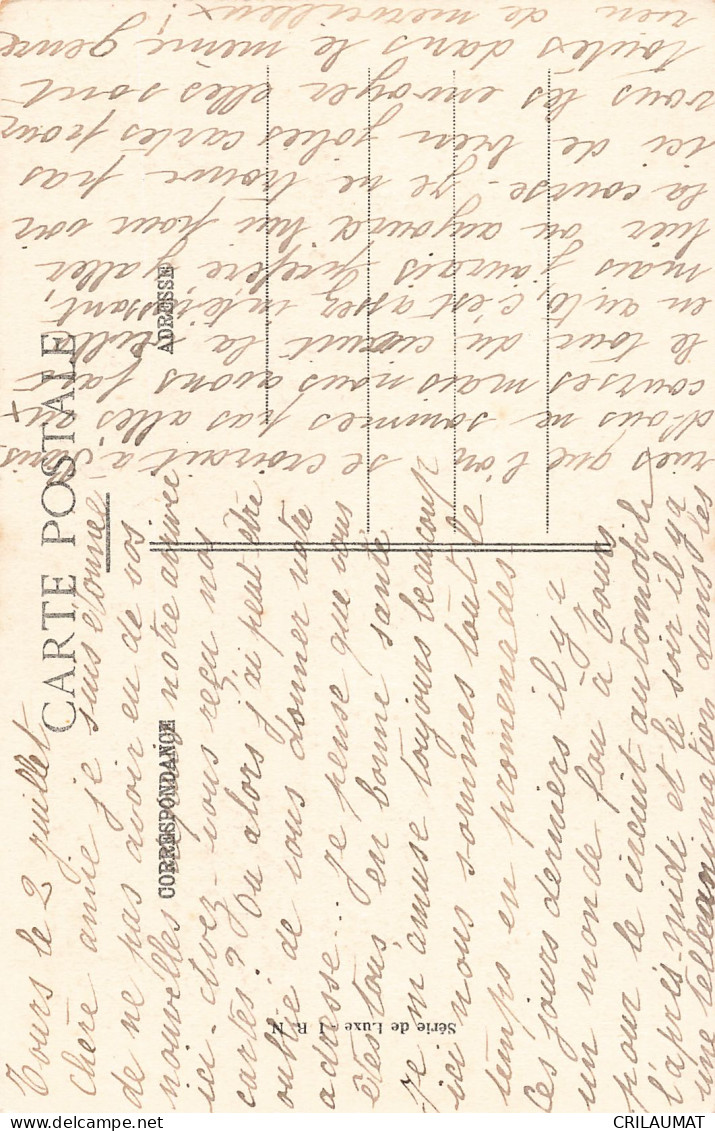 CARTE POSTALE
CORRESPONDANCE
ADRESSE
Tours le 2 juillet
Chère amie je suis étonnée
de ne pas avoir eu de vos
nouvelles notre arrivée
ici. Avez-vous reçu nos
cartes? Ou alors j'ai peut être
oublié de vous donner notre
adresse... Je pense que vous
êtes tous en bonne santé
Je m'amuse toujours beaucoup
ici nous sommes tout le
temps en promenades
Ces jours derniers il y a
un monde fou à Tours
pour le circuit automobile
l'après-midi et le soir il y a
une telle animation dans les
rues que l'on se croirait à Paris
Nous ne sommes pas allés aux
courses mais nous avons fait
le tour du circuit la veille
en auto, c'est assez intéressant,
mais j'aurais préféré y aller
hier ou aujourd'hui pour voir
la course. Je ne trouve pas
ici de bien jolies cartes pour
vous les envoyer elles sont
toutes dans le même genre
rien de merveilleux!
Série de Luxe - I R N
CRILAUMAT